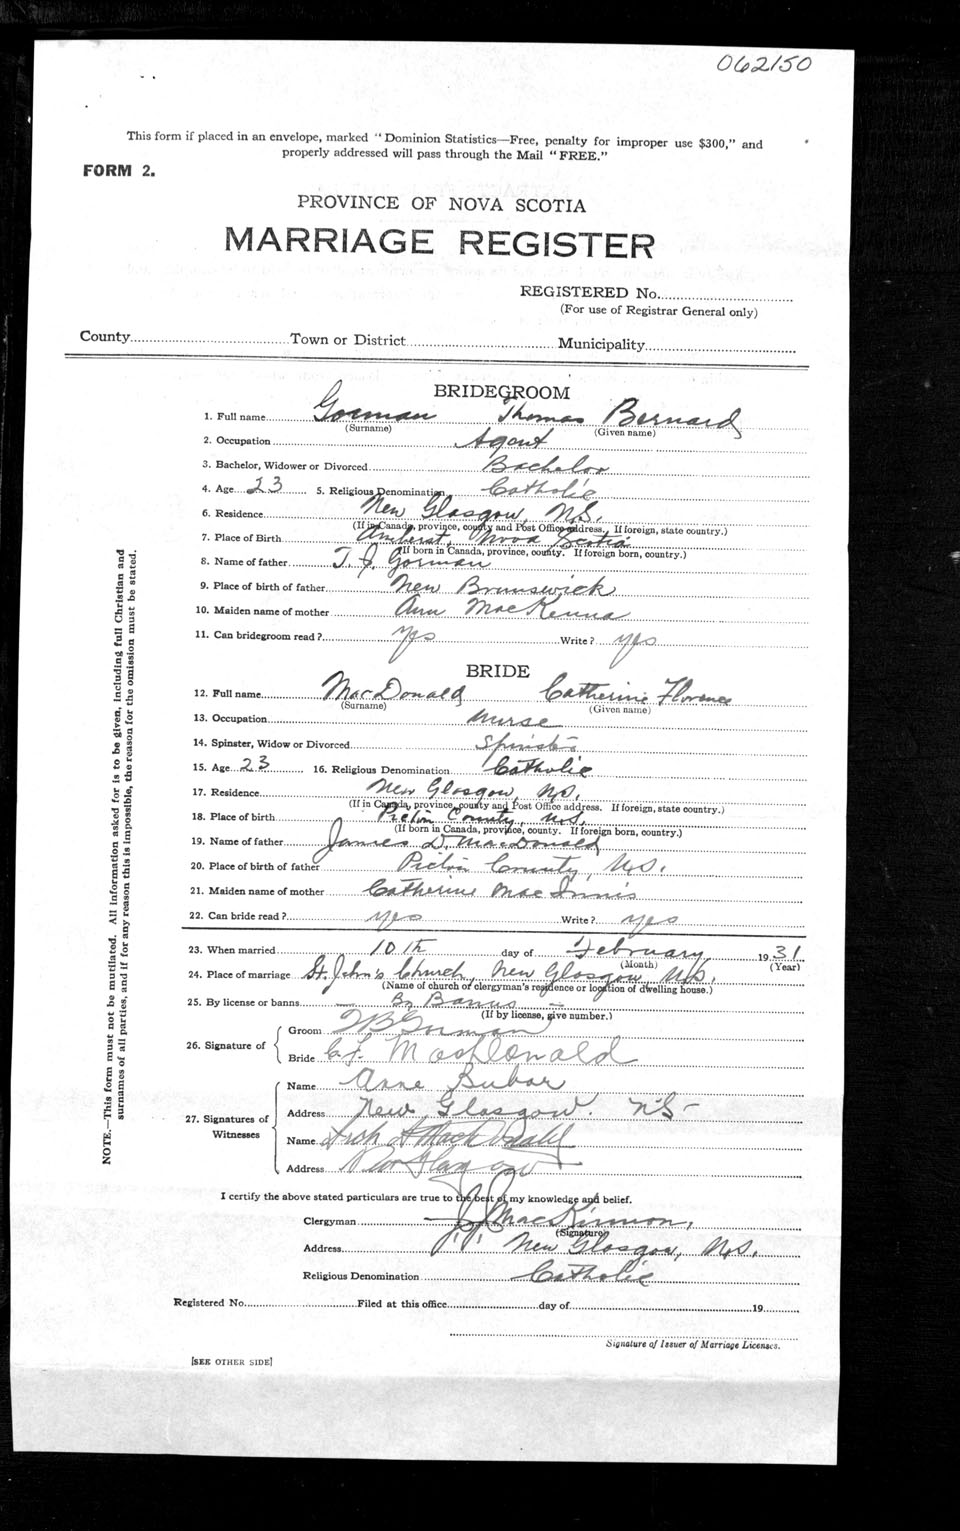 062150
This form if placed in an envelope, marked "Dominion Statistics—Free, penalty for improper use $300," and
properly addressed will pass through the Mail "FREE."
FORM 2.
PROVINCE OF NOVA SCOTIA
MARRIAGE REGISTER
REGISTERED No.
(For use of Registrar General only)
County Town or District Municipality
BRIDEGROOM
1. Full name Gorman Thomas Bernard
(Surname) (Given name)
2. Occupation Agent
3. Bachelor, Widower or Divorced Bachelor
4. Age 23 5. Religious Denomination Catholic
6. Residence New Glasgow, N.S.
(If in Canada, province, county and Post Office address. If foreign, state country.)
7. Place of Birth Amherst, Nova Scotia
(If born in Canada, province, county. If foreign born, country.)
8. Name of father T. J. Gorman
9. Place of birth of father New Brunswick
10. Maiden name of mother Ann MacKenna
11. Can bridegroom read? yes Write? yes
BRIDE
12. Full name MacDonald Catherine Florence
(Surname) (Given name)
13. Occupation Nurse
14. Spinster, Widow or Divorced Spinster
15. Age 23 16. Religious Denomination Catholic
17. Residence New Glasgow, N.S.
(If in Canada, province, county and Post Office address. If foreign, state country.)
18. Place of birth Pictou County, N.S.
(If born in Canada, province, county. If foreign born, country.)
19. Name of father James D. MacDonald
20. Place of birth of father Pictou County, N.S.
21. Maiden name of mother Catherine MacInnis
22. Can bride read? yes Write? yes
23. When married 10th day of February 1931
(Month) (Year)
24. Place of marriage St. John's Church, New Glasgow, N.S.
(Name of church or clergyman's residence or location of dwelling house.)
25. By license or banns — By Banns —
(If by license, give number.)
26. Signature of
Groom T B Gorman
Bride C. F. MacDonald
27. Signatures of Witnesses
Name Anne Bubar
Address New Glasgow. N.S-
Name MacDonald
Address New Glasgow
I certify the above stated particulars are true to the best of my knowledge and belief.
Clergyman J. J. MacKinnon,
(Signature)
Address New Glasgow, N.S.
Religious Denomination Catholic
Registered No. Filed at this office day of 19
Signature of Issuer of Marriage Licenses.
[SEE OTHER SIDE]
NOTE.—This form must not be mutilated. All information asked for is to be given, including full Christian and
surnames of all parties, and if for any reason this is impossible, the reason for the omission must be stated.